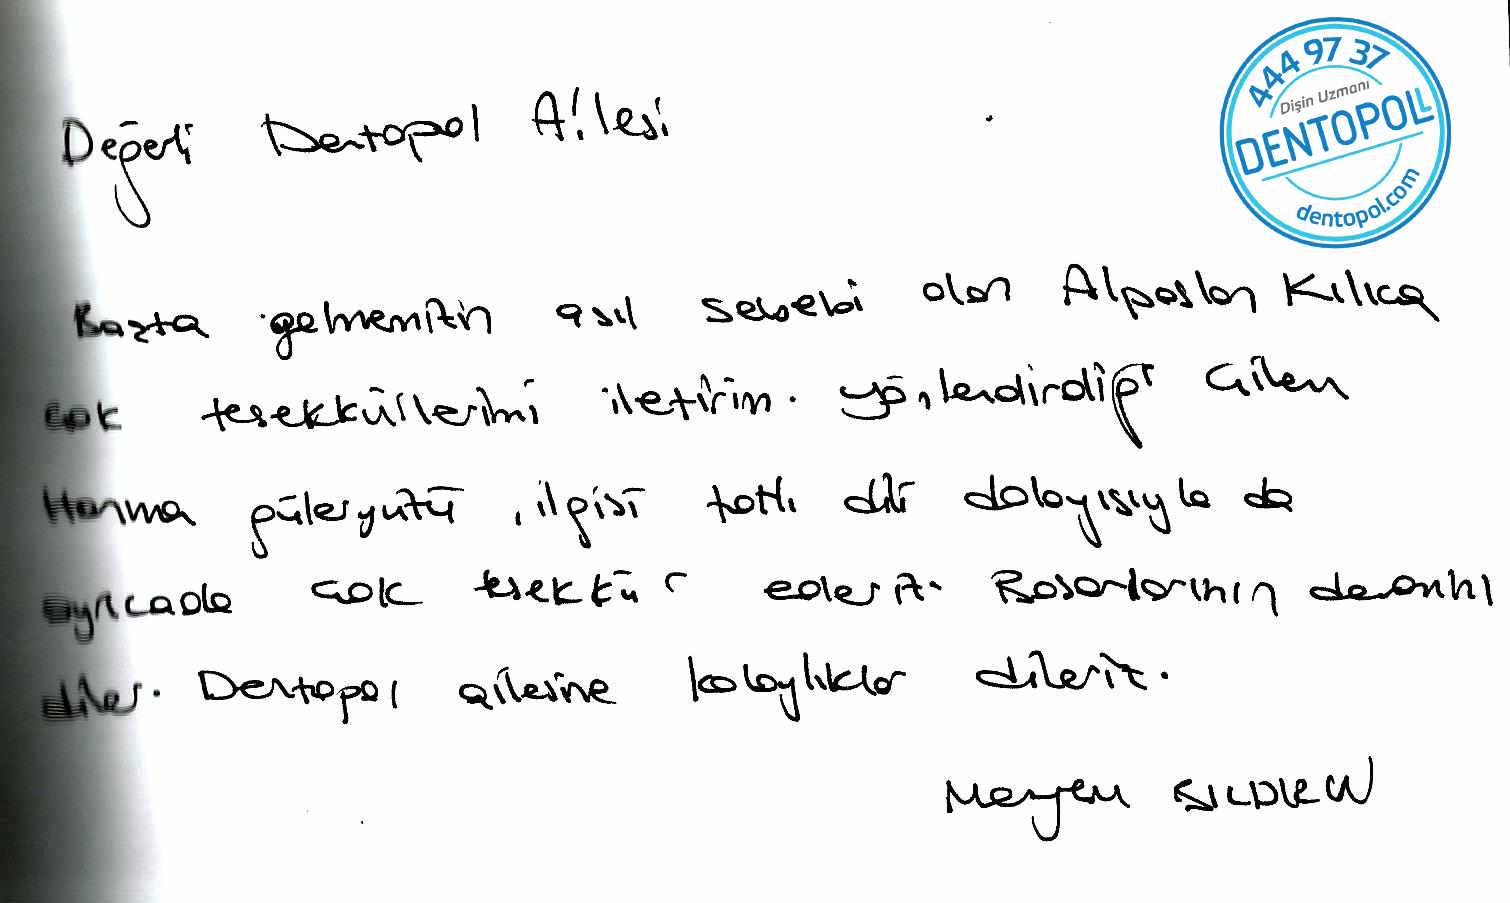 444 97 37
Dişin Uzmanı
DENTOPOLL
dentopol.com
Değerli Dentopol Ailesi
Başta gelmemizin asıl sebebi olan Alpaslan Kılıca
çok teşekkürlerimi iletirim. yönlendirdiği
Hanıma güleryüzü, ilgisi tatlı dili dolayısıyla da
ayrıcada çok teşekkür ederiz. Başarılarının devamını
diler. Dentopol ailesine kolaylıklar dileriz.
Meryem